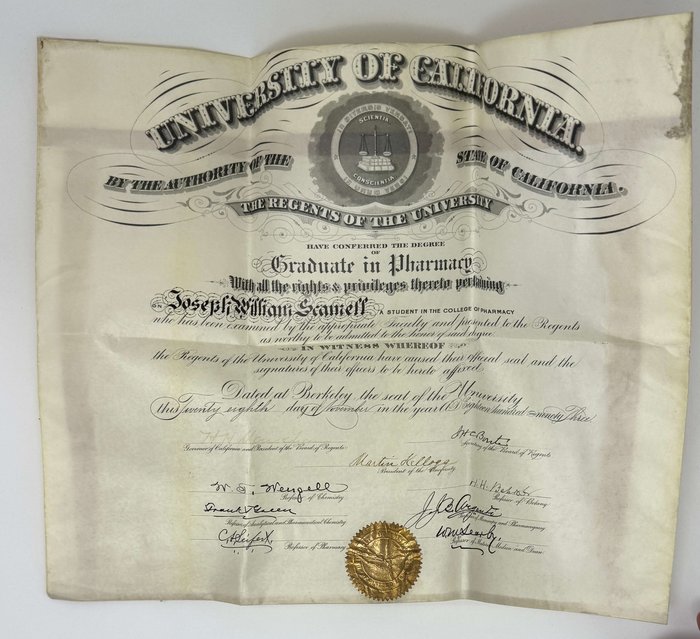 UNIVERSITY OF CALIFORNIA.
SCIENTIA
CONSCIENTIA
BY THE AUTHORITY OF THE STATE OF CALIFORNIA.
THE REGENTS OF THE UNIVERSITY
HAVE CONFERRED THE DEGREE
OF
Graduate in Pharmacy
With all the rights & privileges thereto pertaining
ON Joseph William Scamell A STUDENT IN THE COLLEGE OF PHARMACY
who has been examined by the appropriate Faculty and presented to the Regents
as worthy to be admitted to the honor of said degree.
IN WITNESS WHEREOF
the Regents of the University of California have caused their official seal and the
signatures of their officers to be hereto affixed.
Dated at Berkeley the seat of the University
this Twenty eighth day of November in the year A.D. Eighteen hundred and ninety Three
Governor of California and President of the Board of Regents
J H C Bonté
Secretary of the Board of Regents
Martin Kellogg
President of the University
W. T. Wenzell
Professor of Chemistry
H. H. Behr
Professor of Botany
Frank T Green
Professor of Analytical and Pharmaceutical Chemistry
Professor of Botany and Pharmacognosy
C A Seifert
Professor of Pharmacy
W M Searby
Professor of Materia Medica and Dean